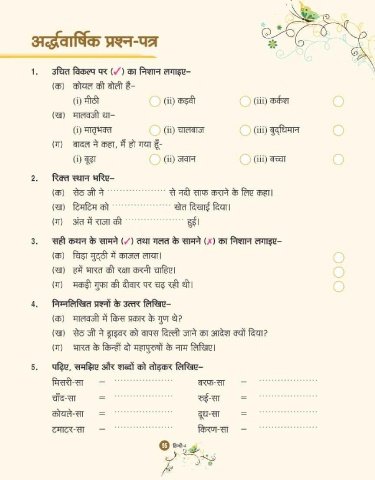 अर्द्धवार्षिक प्रश्न-पत्र
1. उचित विकल्प पर (✓) का निशान लगाइए–
(क) कोयल की बोली है–
(i) मीठी (ii) कड़वी (iii) कर्कश
(ख) मालवजी था–
(i) मातृभक्त (ii) चालबाज (iii) बुद्धिमान
(ग) बादल ने कहा, मैं हो गया हूँ–
(i) बूढ़ा (ii) जवान (iii) बच्चा
2. रिक्त स्थान भरिए–
(क) सेठ जी ने .................... से नदी साफ कराने के लिए कहा।
(ख) टिमटिम को .................... खेत दिखाई दिया।
(ग) अंत में राजा की .................... हुई।
3. सही कथन के सामने (✓) तथा गलत के सामने (✗) का निशान लगाइए–
(क) चिड़ा मुट्ठी में काजल लाया।
(ख) हमें भारत की रक्षा करनी चाहिए।
(ग) मकड़ी गुफा की दीवार पर चढ़ रही थी।
4. निम्नलिखित प्रश्नों के उत्तर लिखिए–
(क) मालवजी में किस प्रकार के गुण थे?
(ख) सेठ जी ने ड्राइवर को वापस दिल्ली जाने का आदेश क्यों दिया?
(ग) भारत के किन्हीं दो महापुरुषों के नाम लिखिए।
5. पढ़िए, समझिए और शब्दों को तोड़कर लिखिए–
मिसरी-सा – .................... बरफ-सा – ....................
चाँद-सा = .................... रुई-सा = ....................
कोयले-सा = .................... दूध-सा = ....................
टमाटर-सा – .................... किरण-सा – ....................
हिन्दी-4